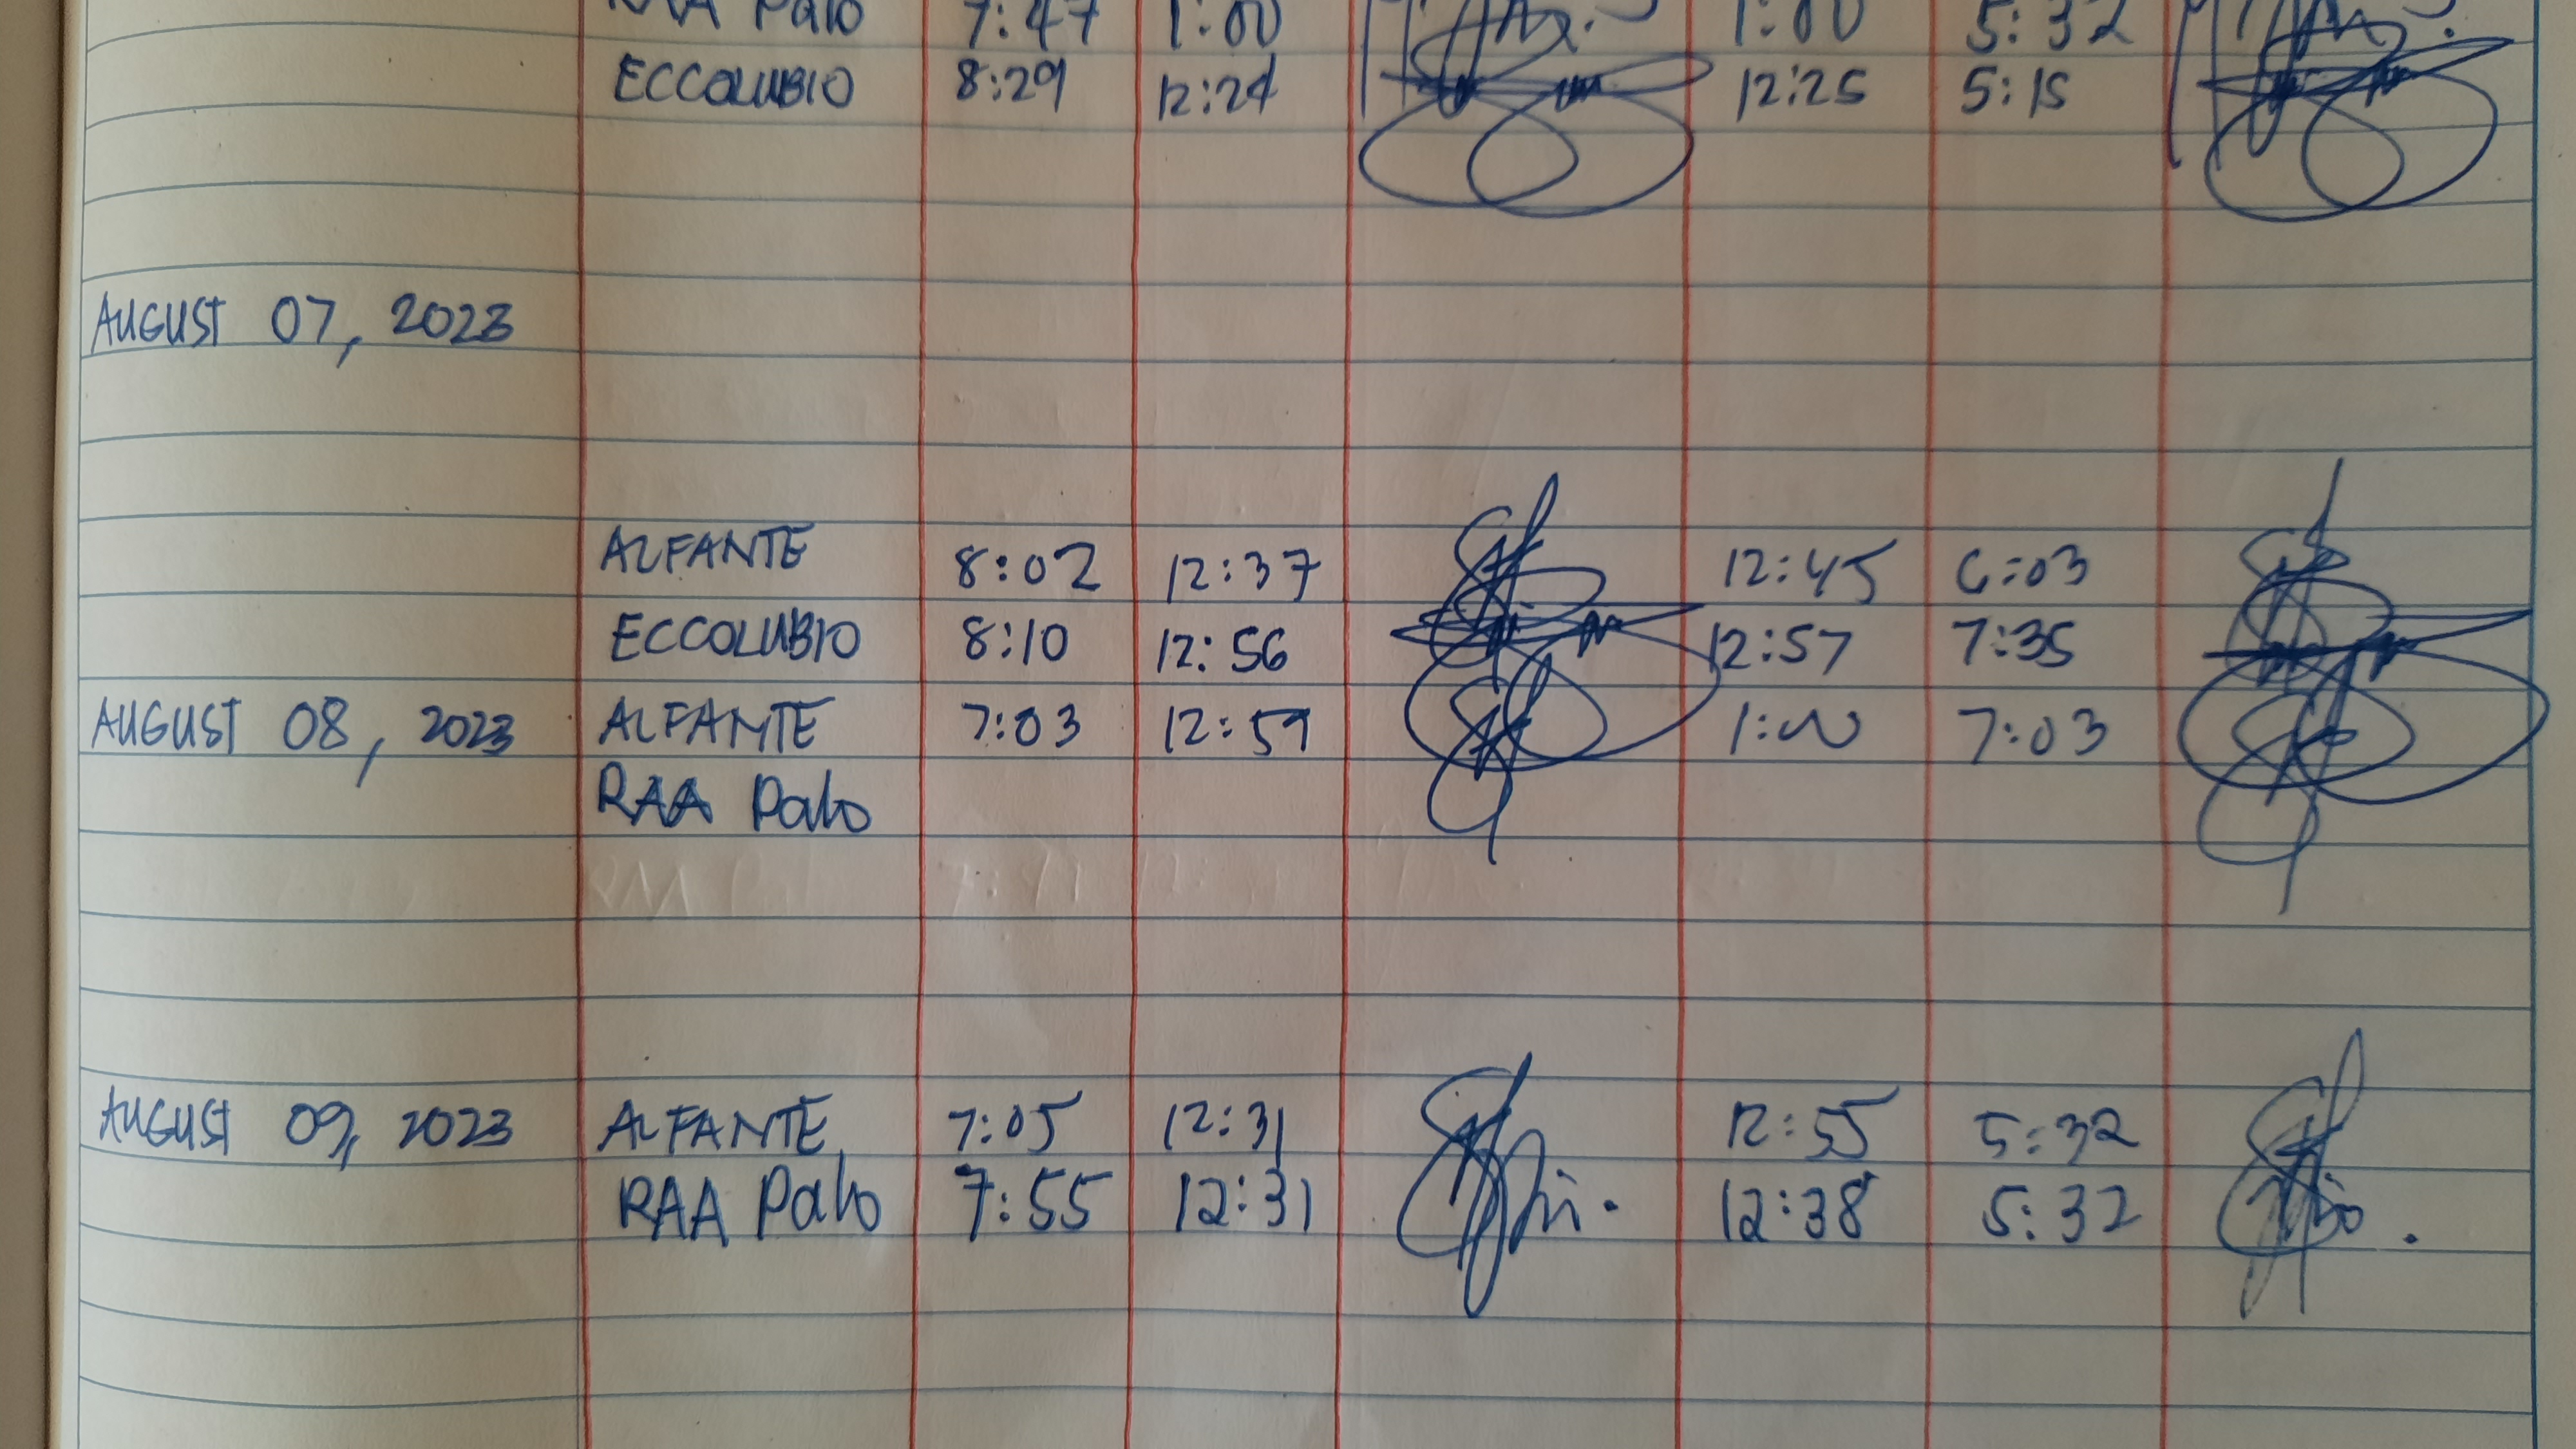 RAA Palo 7:47 1:00 1:00 5:32
ECCOLUBIO 8:29 12:24 12:25 5:15
AUGUST 07, 2023
ALFANTE 8:02 12:37 12:45 6:03
ECCOLUBIO 8:10 12:56 12:57 7:35
AUGUST 08, 2023 ALFANTE 7:03 12:59 1:00 7:03
RAA Palo
AUGUST 09, 2023 ALFANTE 7:05 12:31 12:55 5:32
RAA Palo 7:55 12:31 12:38 5:32